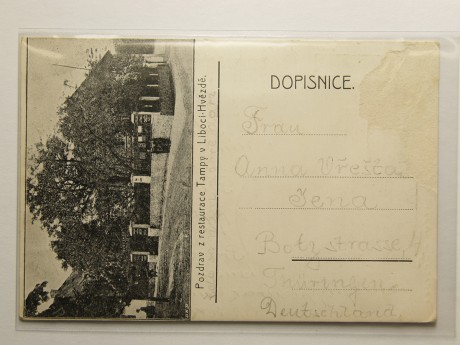 Pozdrav z restaurace Tampy v Liboci-Hvězdě.
DOPISNICE.
Frau
Anna
Jena
Thüringen
Deutschland.